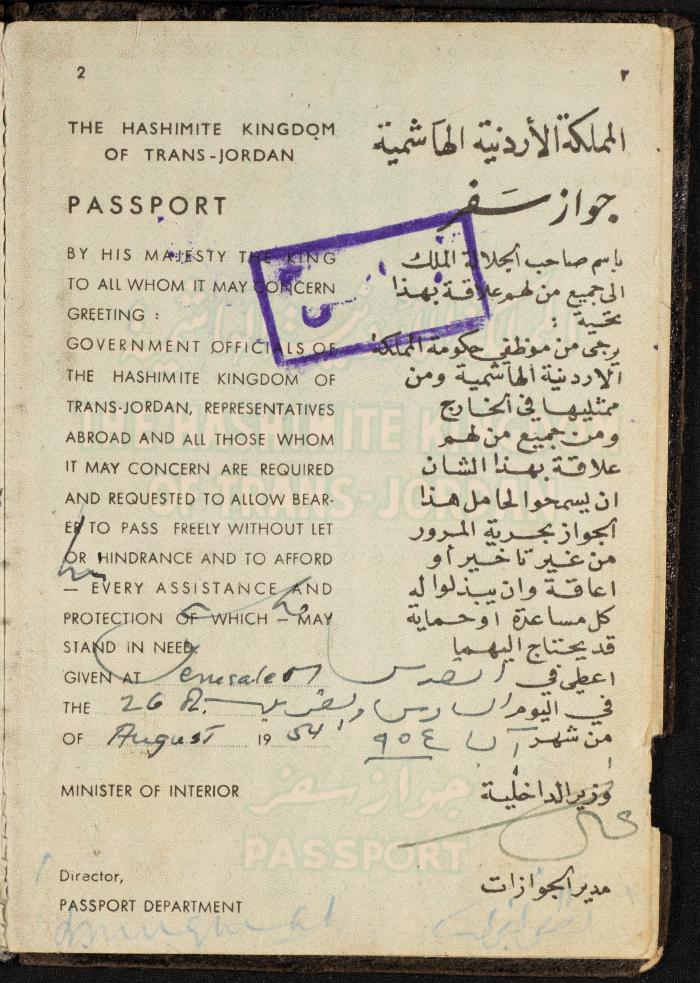 2
٢
THE HASHIMITE KINGDOM
OF TRANS-JORDAN
المملكة الأردنية الهاشمية
PASSPORT
جواز سفر
BY HIS MAJESTY THE KING
TO ALL WHOM IT MAY CONCERN
GREETING :
GOVERNMENT OFFICIALS OF
THE HASHIMITE KINGDOM OF
TRANS-JORDAN, REPRESENTATIVES
ABROAD AND ALL THOSE WHOM
IT MAY CONCERN ARE REQUIRED
AND REQUESTED TO ALLOW BEAR-
ER TO PASS FREELY WITHOUT LET
OR HINDRANCE AND TO AFFORD
— EVERY ASSISTANCE AND
PROTECTION OF WHICH — MAY
STAND IN NEED
GIVEN AT Jerusalem
THE 26
OF August 1954
باسم صاحب الجلالة الملك
الى جميع من لهم علاقة بهذا
تحية :
يرجى من موظفي حكومة المملكة
الاردنية الهاشمية ومن
ممثليها في الخارج
ومن جميع من لهم
علاقة بهذا الشان
ان يسمحوا لحامل هذا
الجواز بحرية المرور
من غير تاخير أو
اعاقة وان يبذلوا له
كل مساعدة او حماية
قد يحتاج اليهما
اعطي في القدس
في اليوم السادس والعشرين
من شهر آب ٩٥٤
MINISTER OF INTERIOR
وزير الداخلية
Director,
PASSPORT DEPARTMENT
مدير الجوازات
THE HASHIMITE KINGDOM
OF TRANS-JORDAN
جواز سفر
PASSPORT